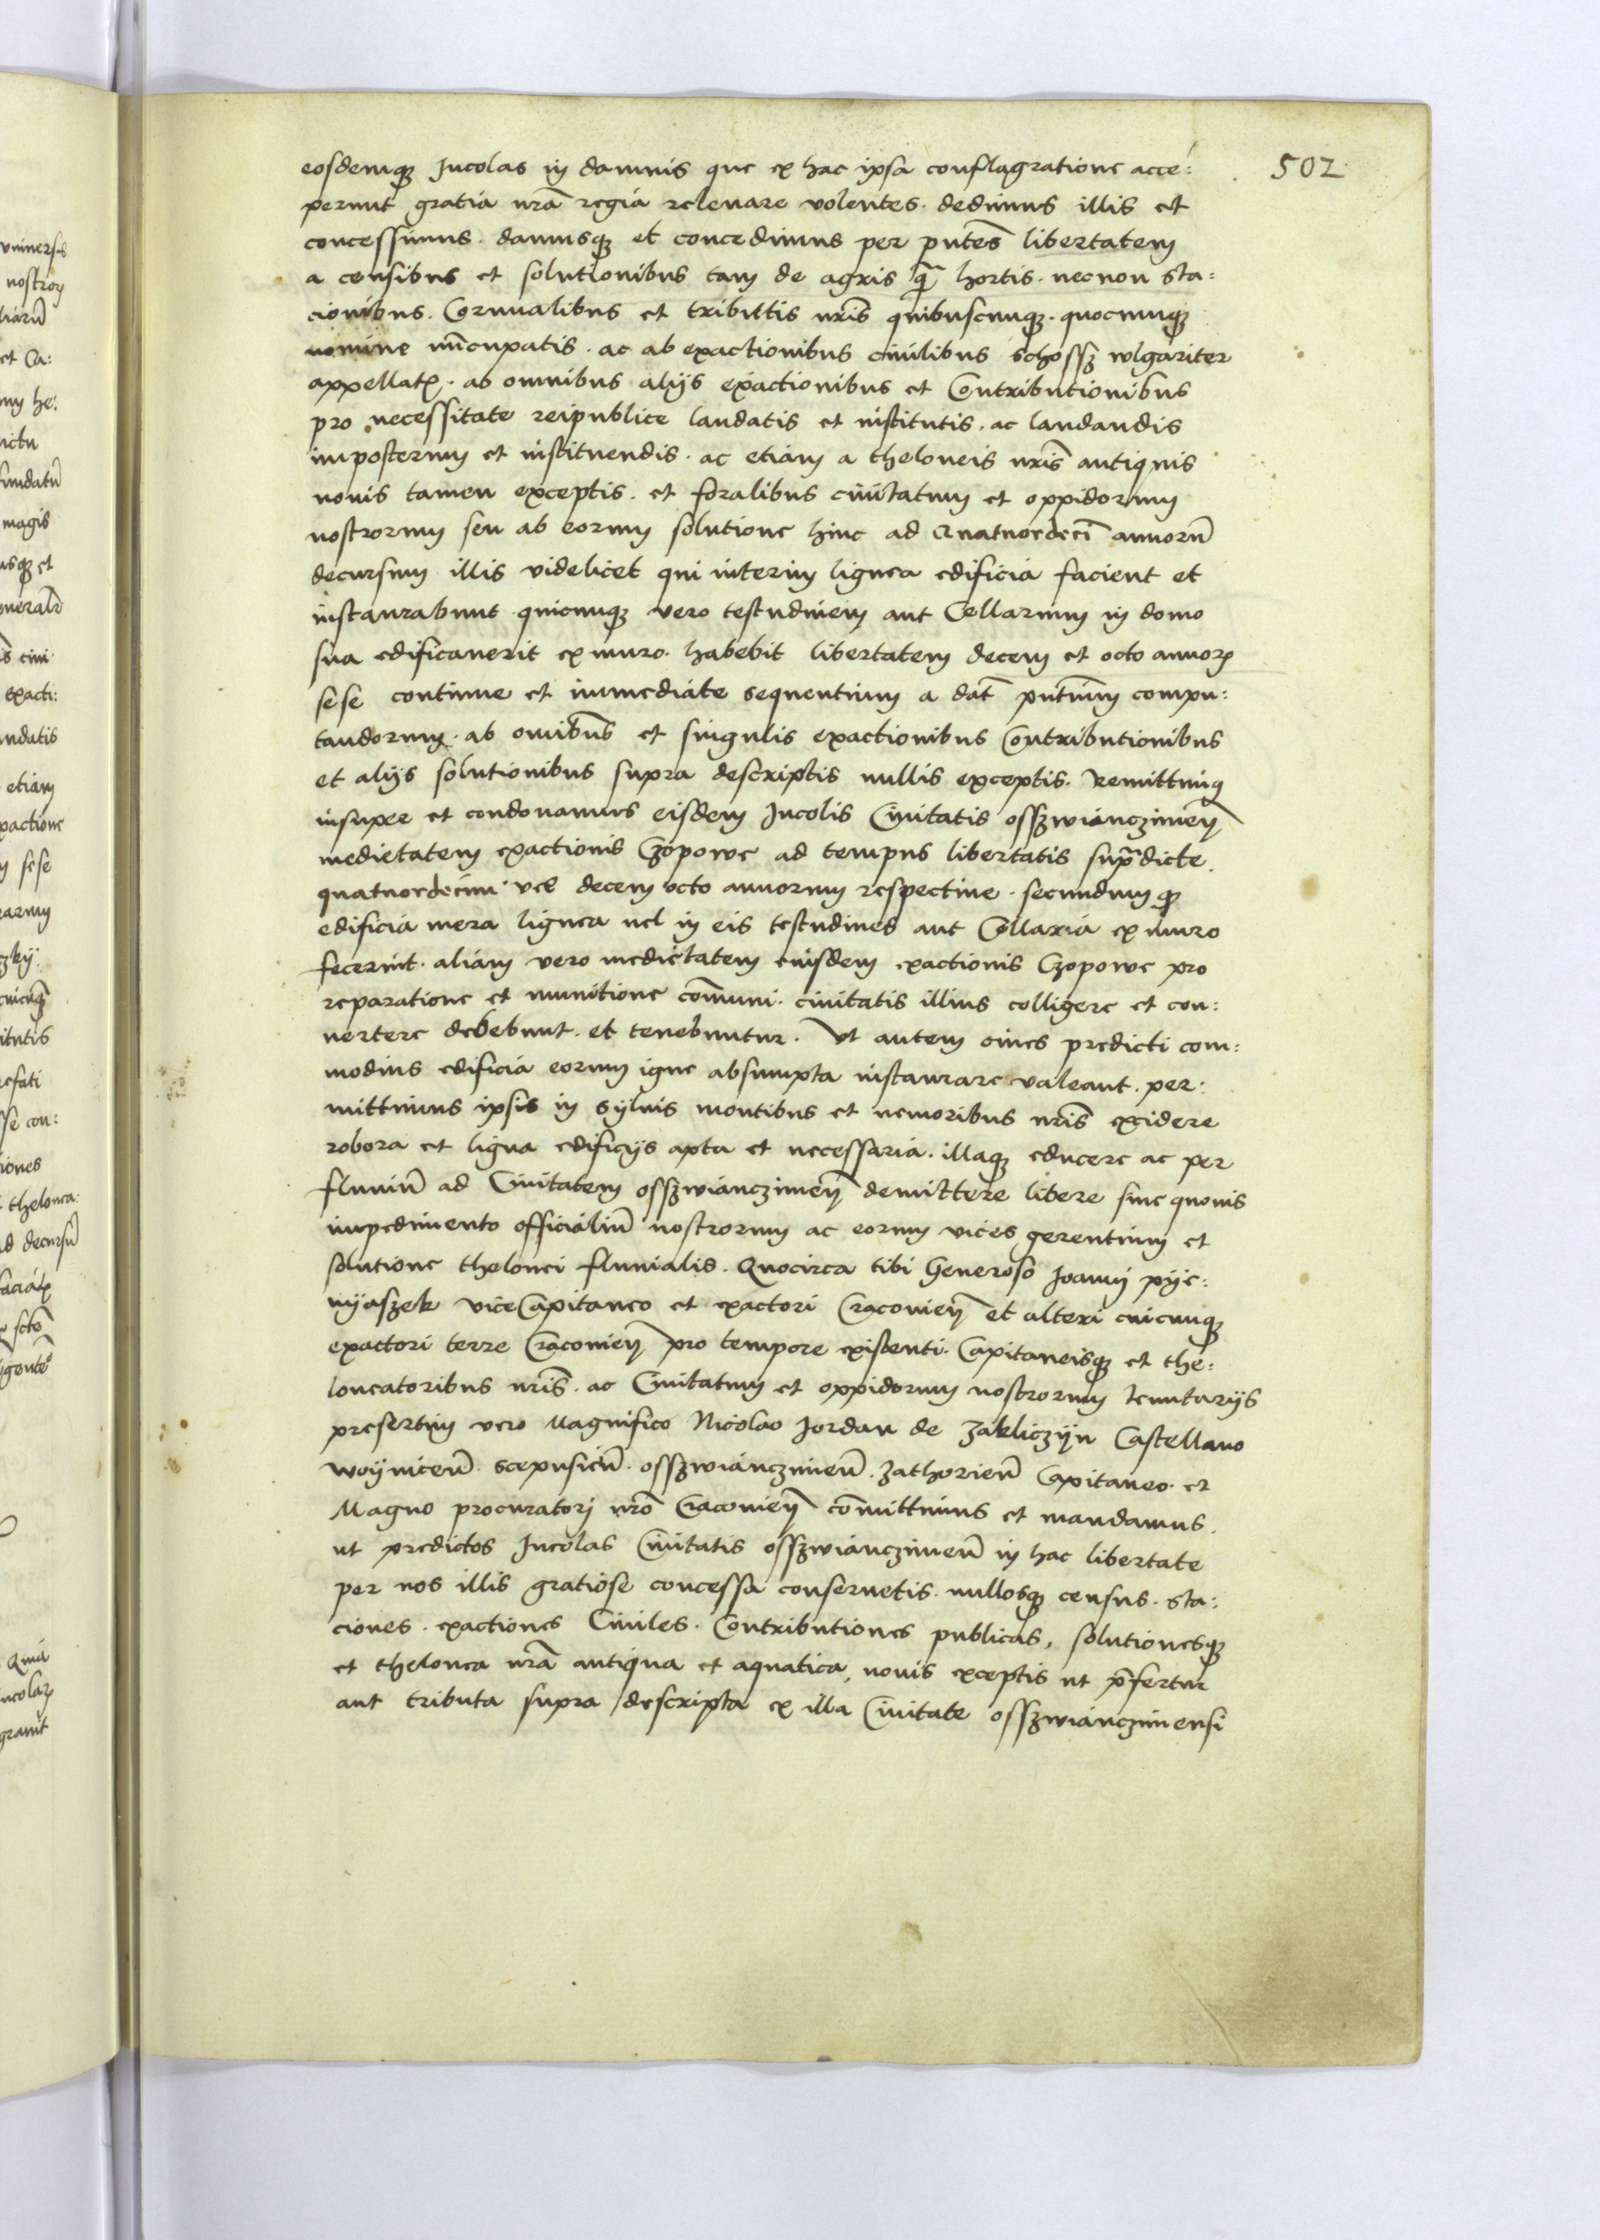 502
eosdemq; Incolas in damnis que ex hac ipsa conflagratione acce:
perunt gratia nr̃a regia relevare volentes. dedimus illis et
concessimus. damusq; et concedimus per pn̄tes libertatem
a censibus et solutionibus tam de agris q̃ hortis. necnon sta:
cionibus. Cornualibus et tributis nr̃is quibuscunq;. quocunq;
nomine nūcupatis. ac ab exactionibus civilibus schossz wlgariter
appellat. ab omnibus alijs exactionibus et Contributionibus
pro necessitate reipublice laudatis et institutis. ac laudandis
imposterum et instituendis. ac etiam a theloneis nr̃is antiquis
novis tamen exceptis. et foralibus civitatum et oppidorum
nostrorum seu ab eorum solutione hinc ad Quatuordecī annorū
decursum illis videlicet qui interim lignea edificia facient et
instaurabunt quicunq; vero testudinem aut Cellarium in domo
sua edificauerit ex muro. habebit libertatem decem et octo annor
sese continue et immediate sequentium a dat̄ pn̄tium compu:
tandorum. ab omībus et singulis exactionibus Contributionibus
et alijs solutionibus supra descriptis nullis exceptis. Remittimus
insuper et condonamus eisdem Incolis Civitatis osszwianczimen̄
medietatem exactionis Czopowe ad tempus libertatis supradicte.
quatuordecim vel decem octo annorum respective. secundum q
edificia mera lignea vel in eis testudines aut Cellaria ex muro
fecerint. aliam vero medietatem eiusdem exactionis Czopowe pro
reparatione et munitione cōmuni. civitatis illius colligere et con:
vertere debebunt. et tenebuntur. Ut autem oīnes predicti com:
modius edificia eorum igne absumpta instaurare valeant. per:
mittimus ipsis in sylvis montibus et nemoribus nr̃is excidere
robora et ligna edificijs apta et necessaria. illaq; educere ac per
fluviū ad Civitatem osszwianczimen̄ demittere libere sine quovis
impedimento officialiū nostrorum ac eorum vices gerentium et
solutione thelonei fluvialis. Quocirca tibi Generoso Joanni pye:
nyaszek viceCapitaneo et exactori Cracovien̄ et alteri cuicunq;
exactori terre Cracovien̄ pro tempore existenti. Capitaneisq; et the:
loneatoribus nr̃is. ac Civitatum et oppidorum nostrorum tenutarijs
presertim vero Magnifico Nicolao Jordan de Zakliczyn Castellano
woynicen̄. scepusien̄. osszwianczimen̄. zathorien̄ Capitaneo. et
Magno procuratori nr̃o Cracovien̄ cōmittimus et mandamus.
ut predictos Incolas Civitatis osszwianczimen̄ in hac libertate
per nos illis gratiose concessa conservetis. nullosq; census. sta:
ciones. exactiones Civiles. Contributiones publicas, solutionesq;
et thelonea nr̃a antiqua et aquatica, novis exceptis ut p̄fertur
aut tributa supra descripta ex illa Civitate osszwianczimensi